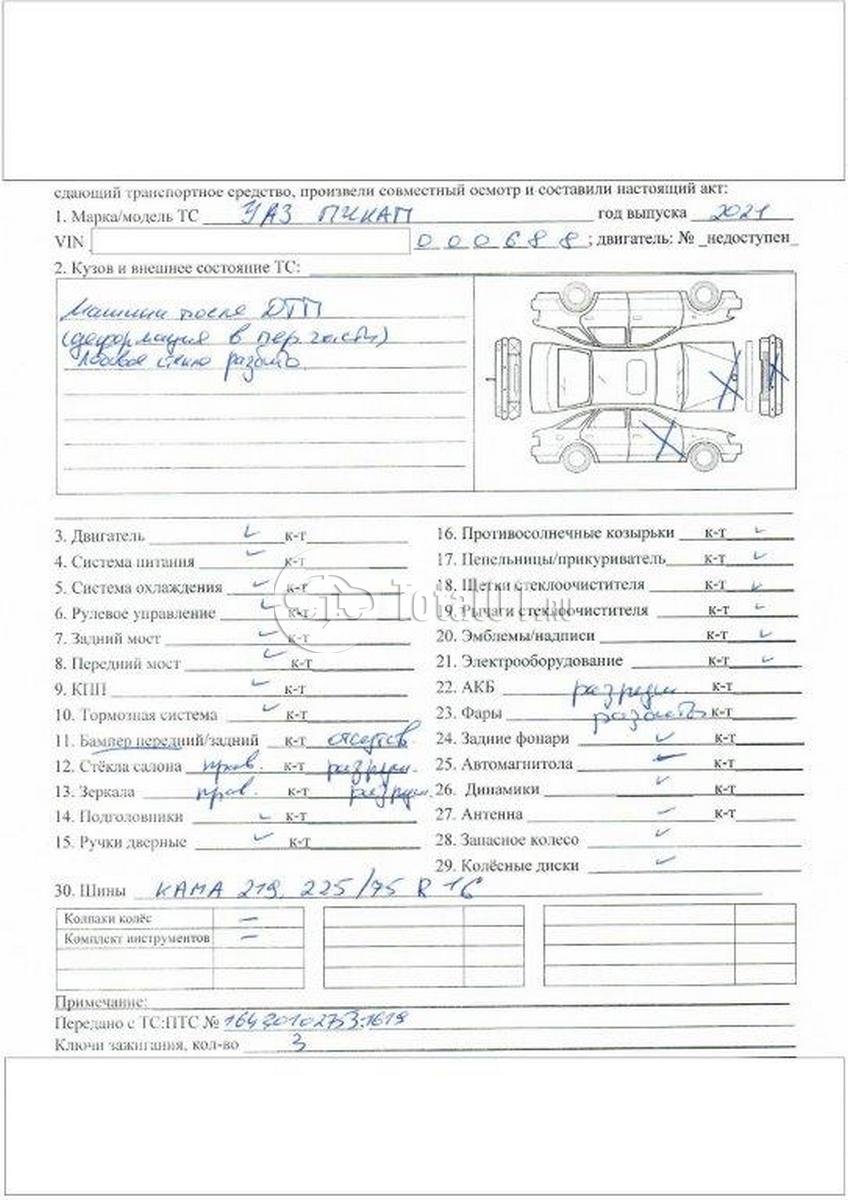 сдающий транспортное средство, произвели совместный осмотр и составили настоящий акт:
1. Марка/модель ТС УАЗ ПИКАП год выпуска 2021
VIN 000688; двигатель: № недоступен
2. Кузов и внешнее состояние ТС:
Машина после ДТП
(деформация в пер. части)
Лобовое стекло разбито.
3. Двигатель ✓ к-т
4. Система питания ✓ к-т
5. Система охлаждения ✓ к-т
6. Рулевое управление ✓ к-т
7. Задний мост ✓ к-т
8. Передний мост ✓ к-т
9. КПП ✓ к-т
10. Тормозная система ✓ к-т
11. Бампер передний/задний к-т отсутств.
12. Стёкла салона прав. к-т разруш.
13. Зеркала прав. к-т разруш.
14. Подголовники ✓ к-т
15. Ручки дверные ✓ к-т
16. Противосолнечные козырьки к-т ✓
17. Пепельницы/прикуриватель к-т ✓
18. Щетки стеклоочистителя к-т ✓
19. Рычаги стеклоочистителя к-т ✓
20. Эмблемы/надписи к-т ✓
21. Электрооборудование к-т ✓
22. АКБ к-т
23. Фары разбиты к-т
24. Задние фонари ✓ к-т
25. Автомагнитола ✓ к-т
26. Динамики ✓ к-т
27. Антенна ✓ к-т
28. Запасное колесо ✓
29. Колёсные диски ✓
30. Шины КАМА 219, 225/75 R 16
Колпаки колёс –
Комплект инструментов –
Примечание:
Передано с ТС:ПТС № 164301027531619
Ключи зажигания, кол-во 3
Total01.ru